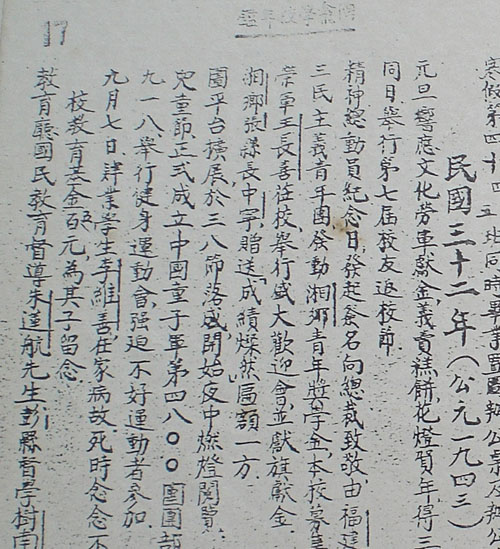 17
寒假第四十四五班同時畢業
民國三十二年(公元一九四三)
元旦響應文化勞軍獻金,義賣糕餅,化燈賀年,得三
同日舉行第七屆校友返校節
精神總動員紀念日,發起簽名向總裁致敬,由福建
三民主義青年團發動湘鄉青年獎學金,本校募
榮軍王長善蒞校,舉行盛大歡迎會並獻旗獻金.
湘鄉張縣長中寧,贈送「成績燦然」匾額一方.
園平台擴展於三八節落成,開始夜中燃燈閱覽
兒童節正式成立中國童子軍第四八〇〇團團部
九一八舉行健身運動會,强迫不好運動者參加.
九月七日肄業學生李維善,在家病故.死時念念不
校教育基金百元,為其子留念
教育廳國民教育督導朱運航先生彭縣督學樹南